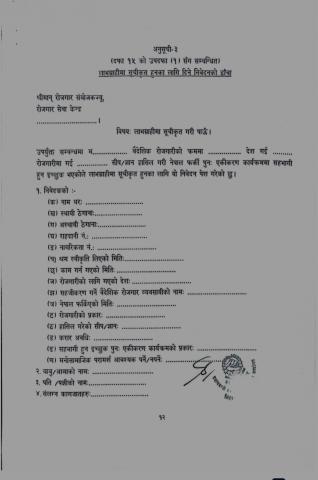 अनुसूची-३
(दफा १५ को उपदफा (१) सँग सम्बन्धित)
लाभग्राहीमा सूचीकृत हुनका लागि दिने निवेदनको ढाँचा
श्रीमान् रोजगार संयोजकज्यू,
रोजगार सेवा केन्द्र
............................ ।
विषयः लाभग्राहीमा सूचीकृत गरी पाऊँ।
उपर्युक्त सम्बन्धमा म.................. वैदेशिक रोजगारीको क्रममा .................. देश गई ..........
रोजगारीमा गई ............ सीप/ज्ञान हासिल गरी नेपाल फर्की पुनः एकीकरण कार्यक्रममा सहभागी
हुन इच्छुक भएकोले लाभग्राहीमा सूचीकृत हुनका लागि यो निवेदन पेश गरेको छु।
१. निवेदकको :-
(क) नाम थरः ............................
(ख) स्थायी ठेगानाः............................
(ग) अस्थायी ठेगानाः............................
(घ) राहदानी नं.: ............................
(ङ) नागरिकता नं.: ............................
(च) श्रम स्वीकृति लिएको मितिः ............................
(छ) काम गर्न गएको मितिः ............................
(ज) रोजगारीको लागि गएको देशः ............................
(झ) सहजीकरण गर्ने वैदेशिक रोजगार व्यवसायीको नामः ............................
(ञ) नेपाल फर्किएको मितिः ............................
(ट) रोजगारीको प्रकारः ............................
(ठ) हासिल गरेको सीप/ज्ञानः ............................
(ड) करार अवधिः ............................
(ढ) सहभागी हुन इच्छुक पुनः एकीकरण कार्यक्रमको प्रकारः ............................
(ण) मनोसामाजिक परामर्श आवश्यक पर्ने/नपर्नेः ............................
२. बाबु/आमाको नामः ............................
३. पति /पत्नीको नामः............................
४. संलग्न कागजातहरुः............................
१२